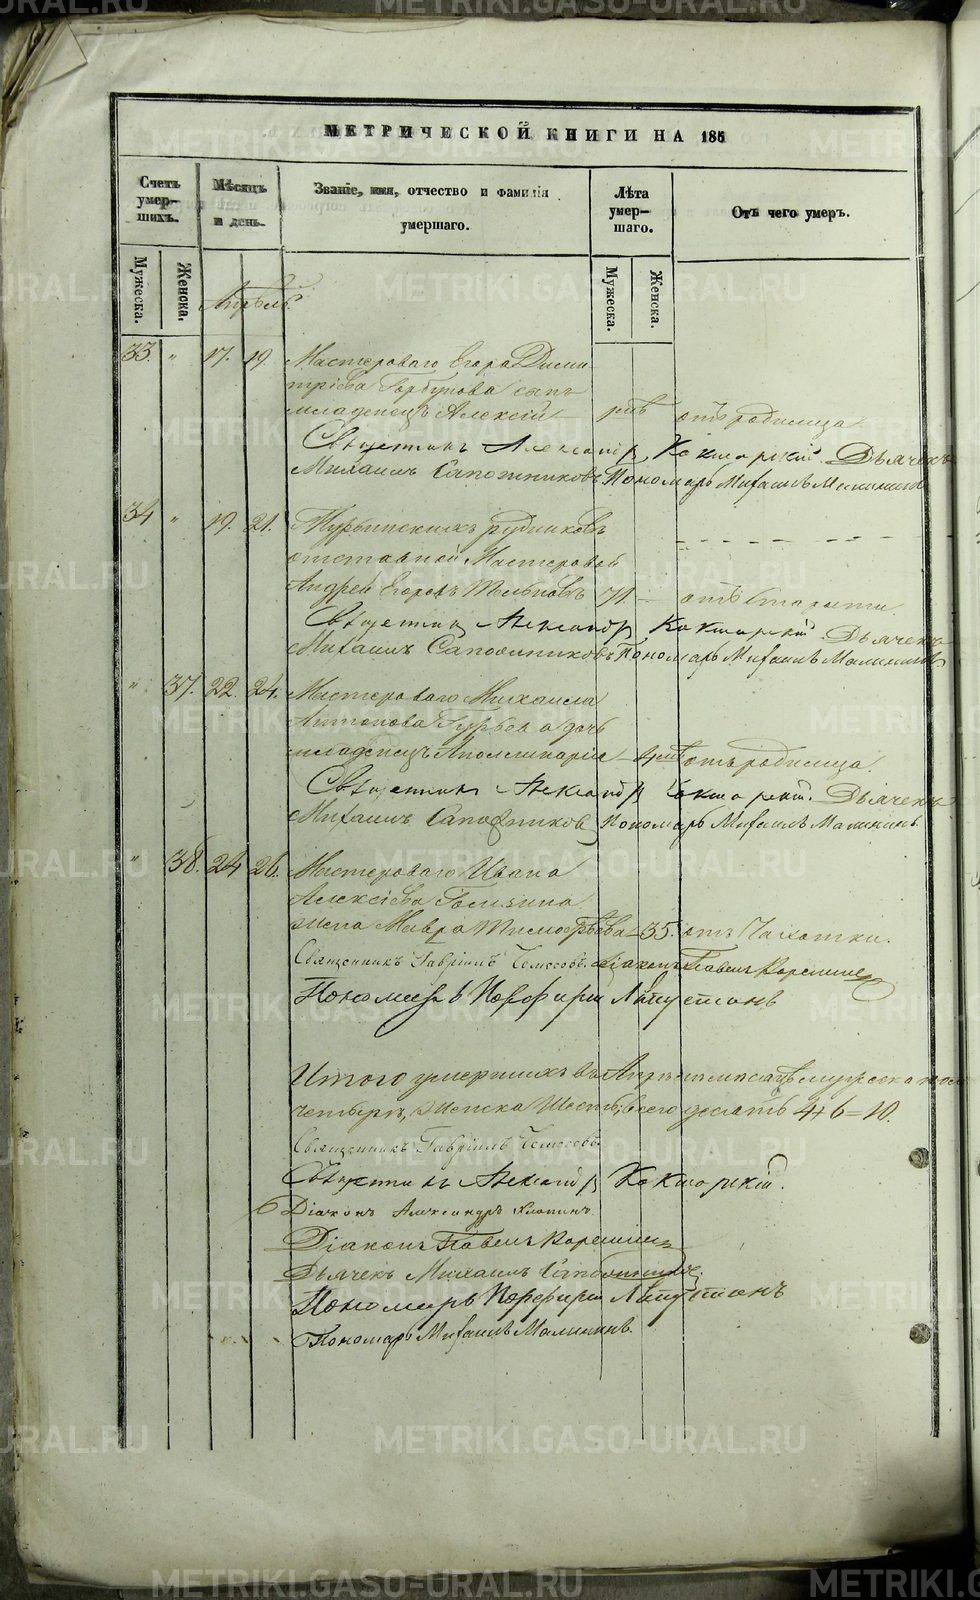 МЕТРИЧЕСКОЙ КНИГИ НА 185
Счетъ умер-шихъ.
Мѣсяцъ и день.
Званіе, имя, отчество и фамилія умершаго.
Лѣта умер-шаго.
Отъ чего умеръ.
Мужеска. Женска.
Мужеска. Женска.
Апрѣль.
33. " 17. 19. Мастероваго Егора Дими
тріева Горбунова сынъ
младенецъ Алексій отъ родимца.
Священникъ Александръ Дьячекъ
Михаилъ Сапожниковъ Пономарь Михаилъ Малининъ
34 " 19. 21. рудниковъ
отставной Мастеровой
Андрей Егоровъ 71. отъ старости.
Священникъ Александръ Дьячекъ
Михаилъ Сапожниковъ Пономарь Михаилъ Малининъ
" 37. 22. 24. Мастероваго Михаила
Антонова Гурьева дочь
младенецъ Аполлинарія отъ родимца.
Священникъ Александръ Дьячекъ
Михаилъ Сапожниковъ Пономарь Михаилъ Малининъ
" 38. 24 26. Мастероваго Ивана
Алексѣева
жена Мавра Тимофѣева 35. отъ Чахотки.
Священникъ Гавріилъ Діаконъ Павелъ
Пономарь Порфирій
Итого умершихъ въ Апрѣлѣ мѣсяцѣ мужеска пола
четыре, женска шесть, всего десять 4+6=10.
Священникъ Гавріилъ
Священникъ Александръ
Діаконъ Александръ
Діаконъ Павелъ
Дьячекъ Михаилъ Сапожниковъ
Пономарь Порфирій
Пономарь Михаилъ Малининъ.
METRIKI.GASO-URAL.RU